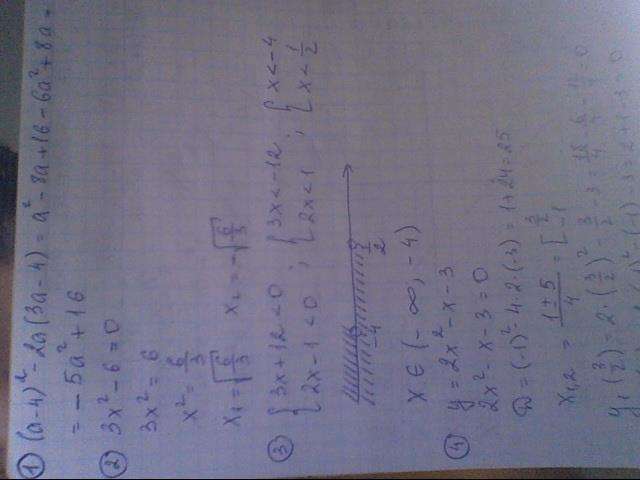 1) (a-4)² - 2a(3a-4) = a² - 8a + 16 - 6a² + 8a =
= -5a² + 16
2) 3x² - 6 = 0
3x² = 6
x² = 6/3
x₁ = √(6/3) x₂ = -√(6/3)
3) { 3x + 12 < 0 ; { 3x < -12 ; { x < -4
{ 2x - 1 < 0 ; { 2x < 1 ; { x < 1/2
-4 1/2
x ∈ (-∞, -4)
4) y = 2x² - x - 3
2x² - x - 3 = 0
D = (-1)² - 4·2·(-3) = 1 + 24 = 25
x₁,₂ = (1±5)/4 = [ 3/2
-1
y₁(3/2) = 2·(3/2)² - 3/2 - 3 =